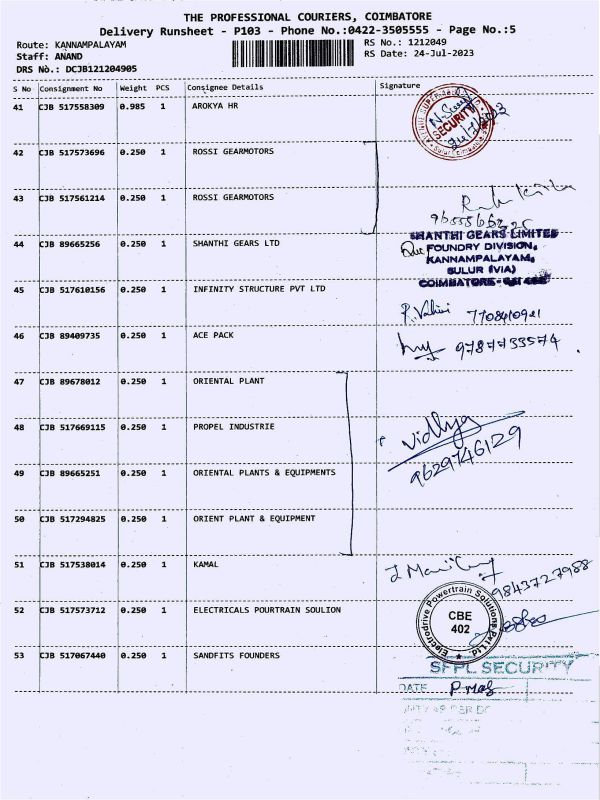 THE PROFESSIONAL COURIERS, COIMBATORE
Delivery Runsheet - P103 - Phone No.:0422-3505555 - Page No.:5
Route: KANNAMPALAYAM
RS No.: 1212049
Staff: ANAND
RS Date: 24-Jul-2023
DRS No.: DCJB121204905
S No Consignment No Weight PCS Consignee Details Signature
41 CJB 517558309 0.985 1 AROKYA HR
SECURITY
42 CJB 517573696 0.250 1 ROSSI GEARMOTORS
43 CJB 517561214 0.250 1 ROSSI GEARMOTORS
44 CJB 89665256 0.250 1 SHANTHI GEARS LTD
SHANTHI GEARS LIMITED
FOUNDRY DIVISION,
KANNAMPALAYAM,
SULUR (VIA)
45 CJB 517610156 0.250 1 INFINITY STRUCTURE PVT LTD
7708410921
46 CJB 89409735 0.250 1 ACE PACK
9787733574
47 CJB 89678012 0.250 1 ORIENTAL PLANT
48 CJB 517669115 0.250 1 PROPEL INDUSTRIE
Vidhya
9629746129
49 CJB 89665251 0.250 1 ORIENTAL PLANTS & EQUIPMENTS
50 CJB 517294825 0.250 1 ORIENT PLANT & EQUIPMENT
51 CJB 517538014 0.250 1 KAMAL
9843727988
52 CJB 517573712 0.250 1 ELECTRICALS POURTRAIN SOULION
Electrodrive Powertrain Solutions Pvt Ltd.
CBE
402
53 CJB 517067440 0.250 1 SANDFITS FOUNDERS
SFPL SECURITY
DATE